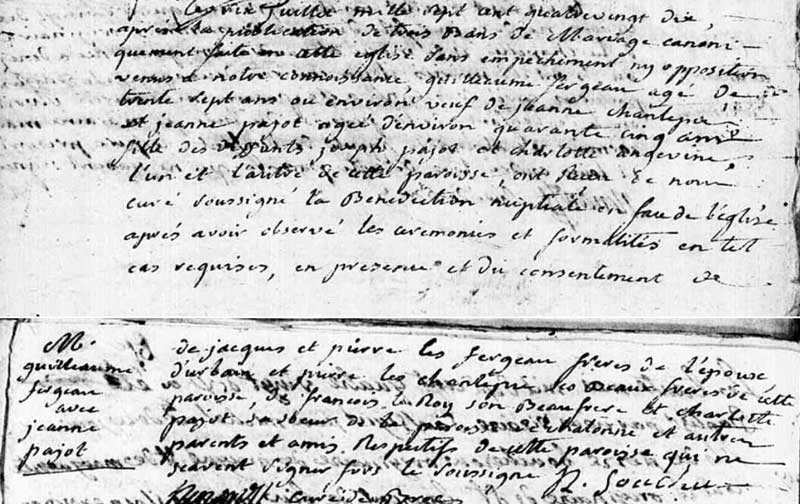 juillet mille sept cent quatrevingt dix,
après la publication de trois bans de Mariage canoni-
quement faite en cette eglise sans empechement ny opposition
venus a notre connoissance, guilleaume sergeau agé de
trente sept ans ou environ veuf de jeanne chanlepie
et jeanne pajot agée d'environ quarante cinq ans
fille des deffunts joseph pajot et charlotte angevine,
l'un et l'autre de cette paroisse, ont receu de nous
curé soussigné la Benediction nuptiale en face de l'église
après avoir observé les ceremonies et formalités en tel
cas requises, en presence et du consentement de
M.
guilleaume
sergeau
avec
jeanne
pajot
de jacques et pierre les sergeau freres de l'epoux
d'urbain et pierre les chanlepie Beaux freres de cette
paroisse, de francois le Roy son Beaufrere et charlotte
pajot sa soeur de la paroisse et autres
parents et amis Respectifs de cette paroisse qui ne
scavent signer fors le soussigné
curé de